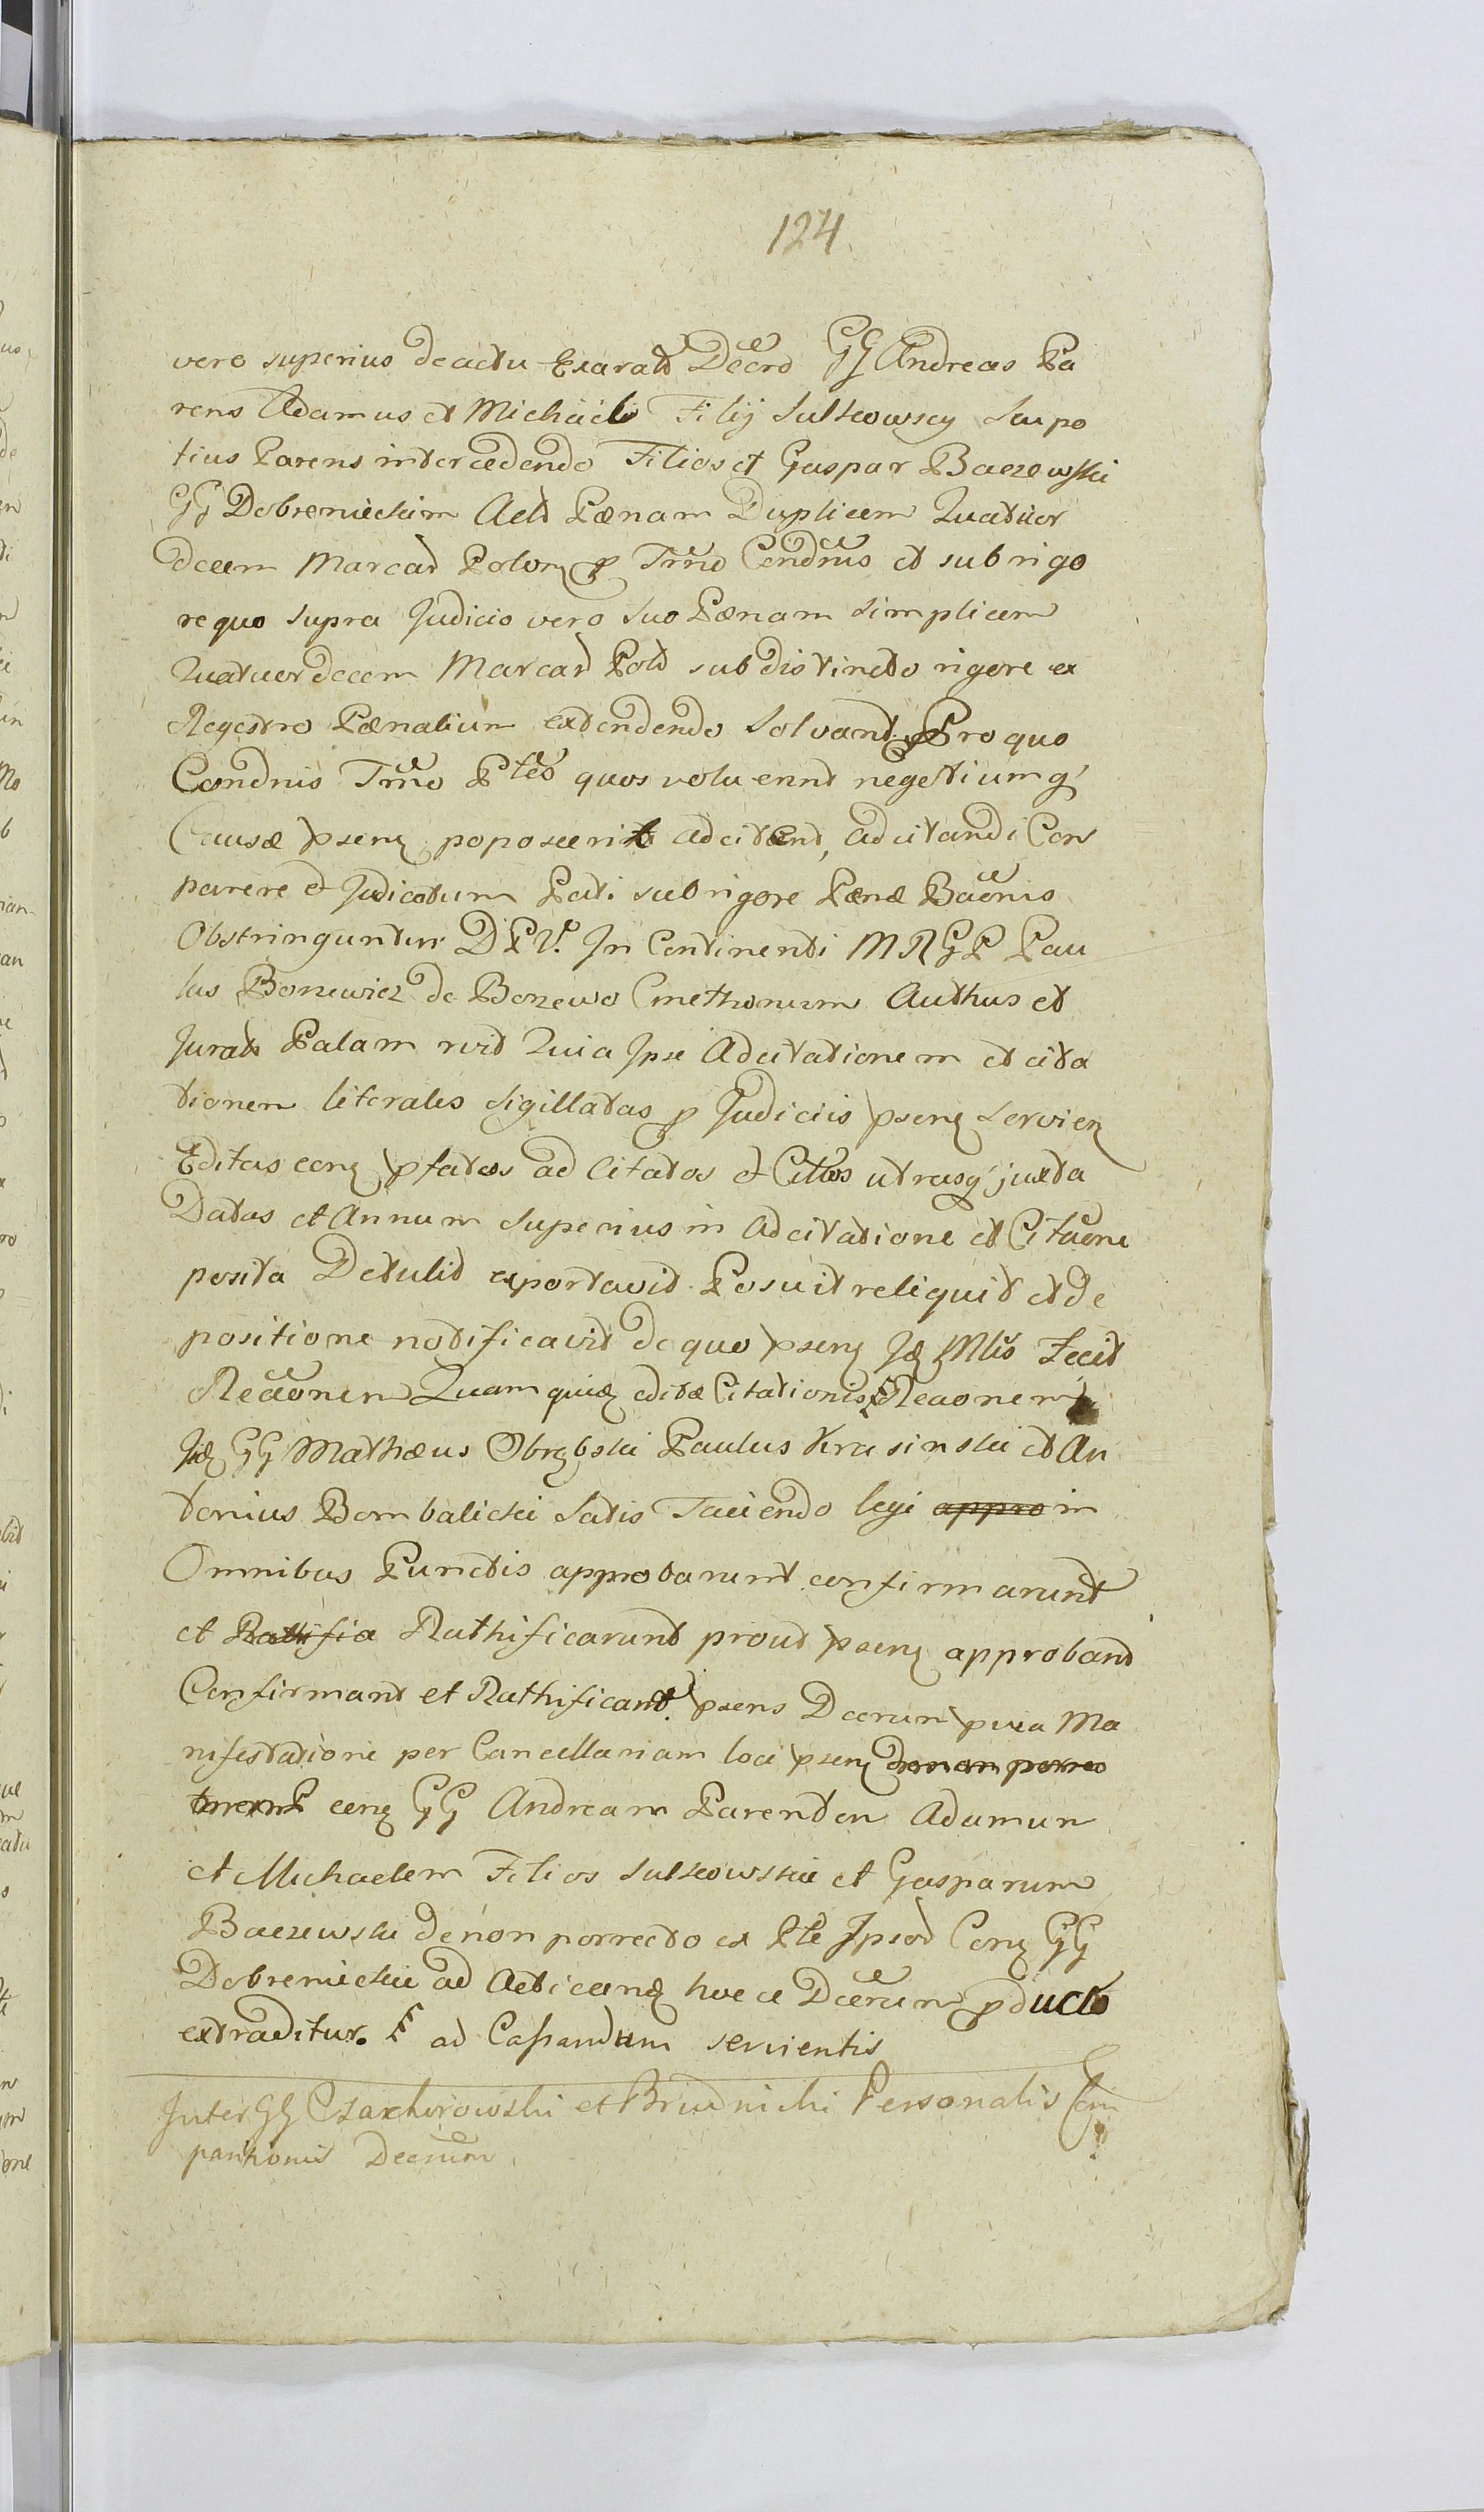 124
vero superius de actu Exarato Decro GG Andreas Pa
rens Adamus et Michael Filij Sulkowscy Seu po
tius Parens intercedendo Filios et Gaspar Baczewski
GG Dobrenieckim Acto Pænam Duplicem Quatuor
decem Marcar Polon p Trno Condnis et sub rigo
re quo supra Judicio vero suo Pænam simplicem
Quatuordecem Marcar Pol sub distincto rigore ex
Regestro Pænalium extendendo Solvant Pro quo
Condnis Trno Ptes quos voluerint negotiumq
Causæ psens poposcerit adcitent, adcitandi Com
parere et Judicatum Pati sub rigore Pænæ Baonis
Obstringuntur D P V. In Continenti M R G P Pau
lus Bonewicz de Bonzewo Cmethonum Authus et
Jurats Palam rvit Quia Ipse Adcitationem et cita
tionem literales sigillatas p Judiciis psens Servien
Editas eorum pfatos ad Citatos et Cittos utrasq juxta
Datas et Annum superius in Adcitatione et Citaone
posita Detulit exportavit Posuit reliquit et de
positione notificavit de quo psens Idem Mlis Fecit
Reaonem Quam quidem editæ Citationis Reaonem
Iidem GG Mathæus Obrębski Paulus Krasinski et An
tonius Bombalicki Satis Faciendo legi appro in
Omnibus Punctis approbarunt confirmarunt
et Rattifia Rathificarunt prout psens approbant
Confirmant et Rathificant psens Decrum pvia Ma
nifestatione per Cancellariam loci psens de non porrec
eorum GG Andream Parentem Adamum
et Michaelem Filios Sulkowskie et Gasparum
Baczewski de non porrecto ex Pte Ipsor Coram GG
Dobrenieckie ad Acticand hocce Decrum pducto
extraditur. ad Cassandum servientis
Inter GG Czachorowski et Brudnicki Personalis Com
paritionis Decrum